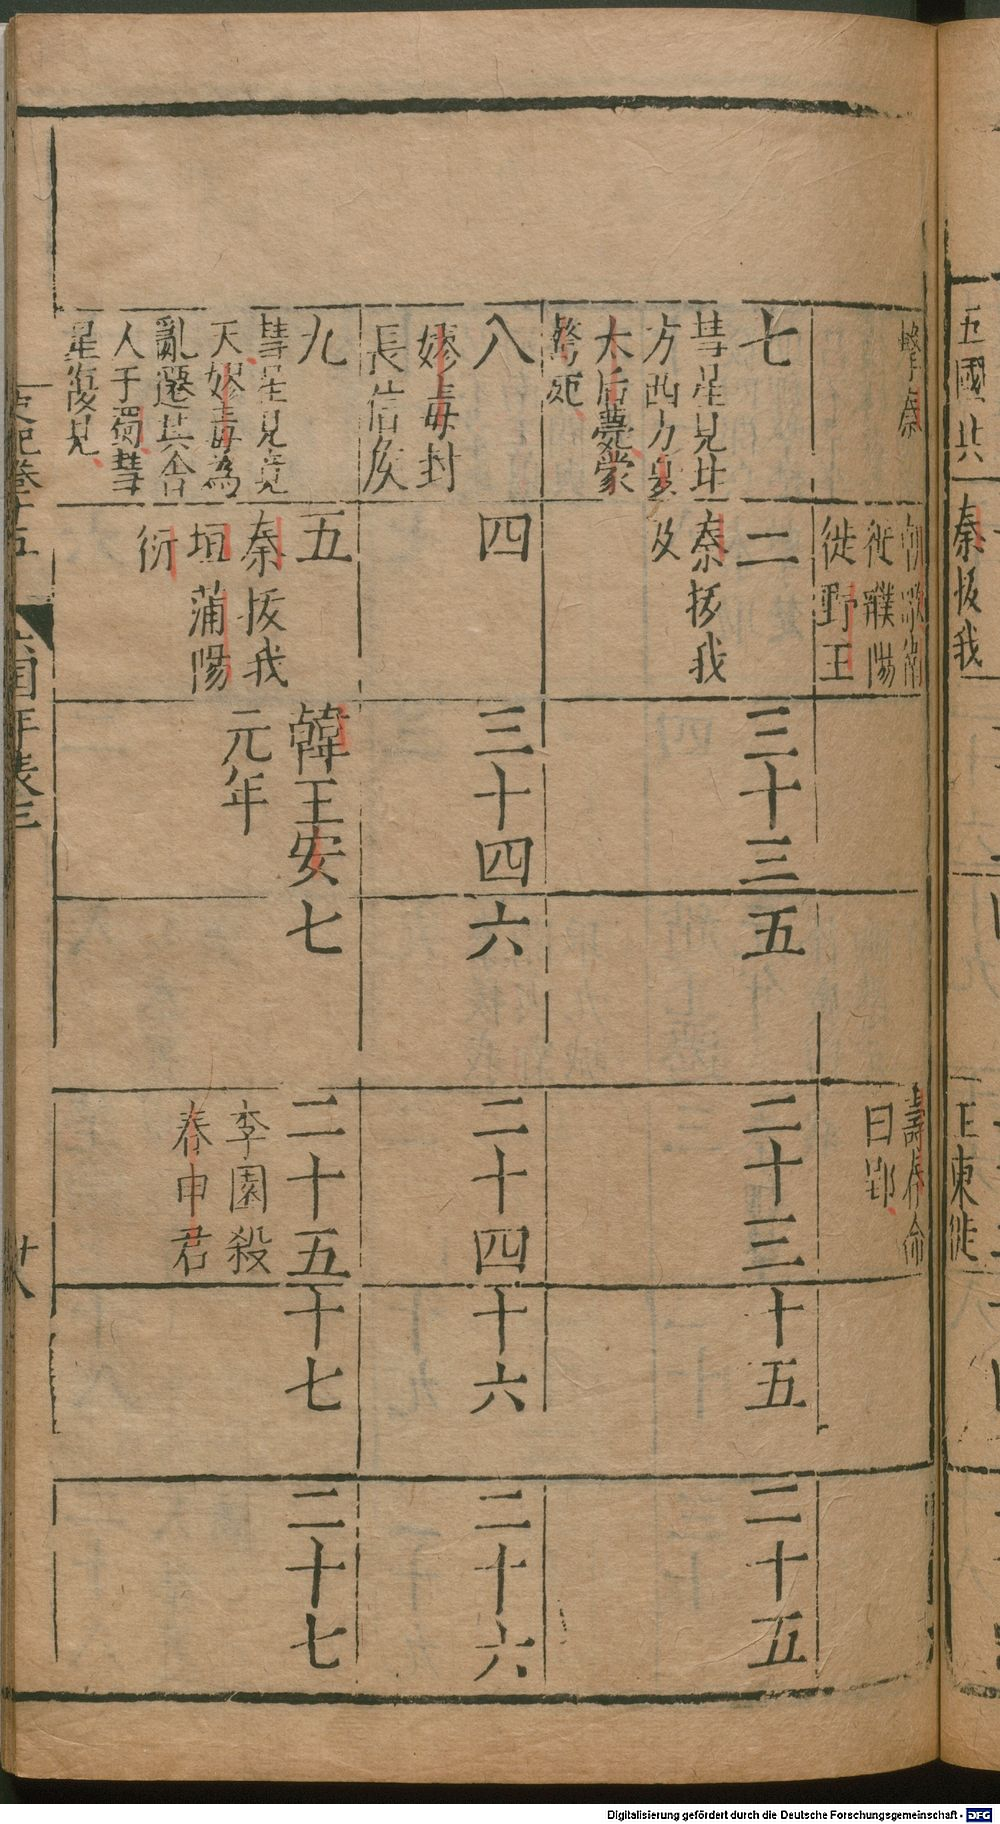 五國共
秦拔我
王東徙
擊秦
朝歌衛
從濮陽
徙野王
壽春命
曰郢
七
彗星見北
方西方夏
太后薨蒙
驁死
二
秦拔我
汲
三十三
五
二十三
十五
二十五
八
嫪毐封
長信侯
四
三十四
六
二十四
十六
二十六
九
彗星見竟
天嫪毐為
亂遷其舍
人于蜀彗
星復見
五
秦拔我
垣蒲陽
衍
韓王安
元年
七
二十五
李園殺
春申君
十七
二十七
史記卷十五
六國年表三
廿八
Digitalisierung gefördert durch die Deutsche Forschungsgemeinschaft - DFG